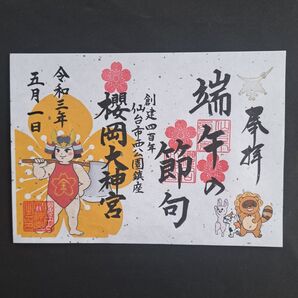 奉拝
端午の
節句
創建四百年
仙台市西公園鎮座
櫻岡大神宮
令和三年
五月一日
金